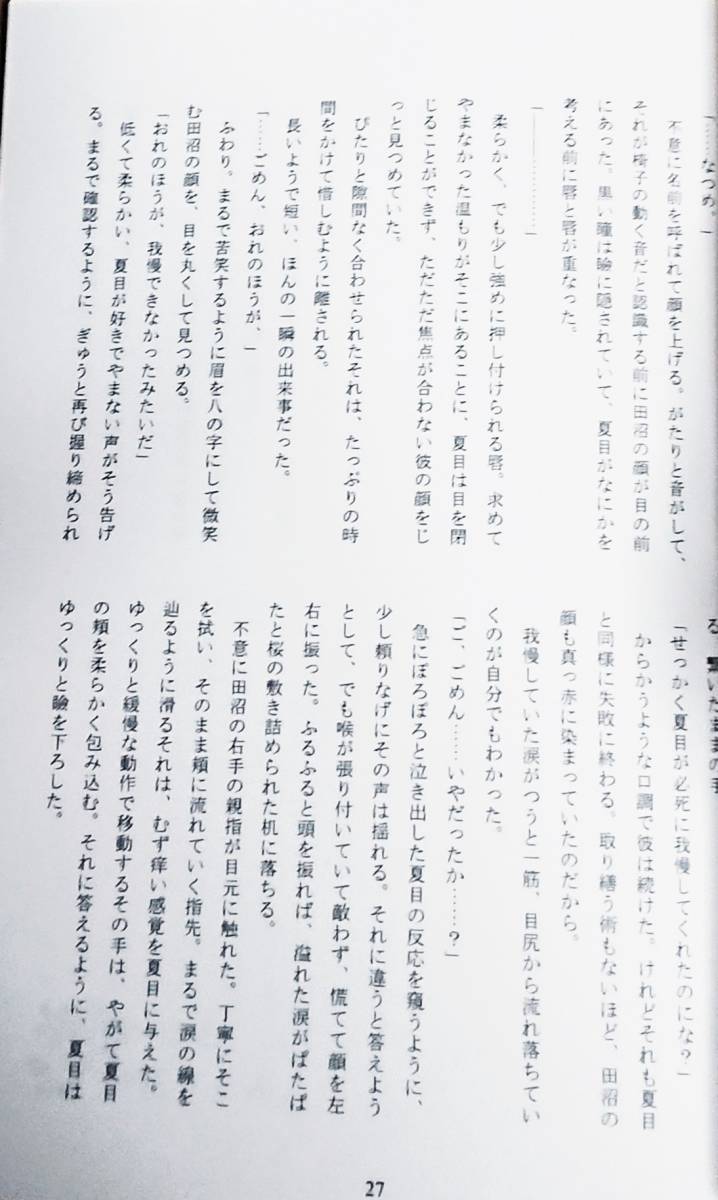 「……なつめ。」
不意に名前を呼ばれて顔を上げる。がたりと音がして、
それが椅子の動く音だと認識する前に田沼の顔が目の前
にあった。黒い瞳は瞼に隠されていて、夏目がなにかを
考える前に唇と唇が重なった。
「―――――――」
柔らかく、でも少し強めに押し付けられる唇。求めて
やまなかった温もりがそこにあることに、夏目は目を閉
じることができず、ただただ焦点が合わない彼の顔をじ
っと見つめていた。
ぴたりと隙間なく合わせられたそれは、たっぷりの時
間をかけて惜しむように離される。
長いようで短い、ほんの一瞬の出来事だった。
「……ごめん、おれのほうが、」
ふわり。まるで苦笑するように眉を八の字にして微笑
む田沼の顔を、目を丸くして見つめる。
「おれのほうが、我慢できなかったみたいだ」
低くて柔らかい、夏目が好きでやまない声がそう告げ
る。まるで確認するように、ぎゅうと再び握り締められ
る、繋いだままの手
「せっかく夏目が必死に我慢してくれたのにな？」
からかうような口調で彼は続けた。けれどそれも夏目
と同様に失敗に終わる。取り繕う術もないほど、田沼の
顔も真っ赤に染まっていたのだから。
我慢していた涙がつうと一筋、目尻から流れ落ちてい
くのが自分でもわかった。
「ご、ごめん……いやだったか……？」
急にぼろぼろと泣き出した夏目の反応を窺うように、
少し頼りなげにその声は揺れる。それに違うと答えよう
として、でも喉が張り付いていて敵わず、慌てて顔を左
右に振った。ふるふると頭を振れば、溢れた涙がぱたぱ
たと桜の敷き詰められた机に落ちる。
不意に田沼の右手の親指が目元に触れた。丁寧にそこ
を拭い、そのまま頬に流れていく指先。まるで涙の線を
辿るように滑るそれは、むず痒い感覚を夏目に与えた。
ゆっくりと緩慢な動作で移動するその手は、やがて夏目
の頬を柔らかく包み込む。それに答えるように、夏目は
ゆっくりと瞼を下ろした。
27